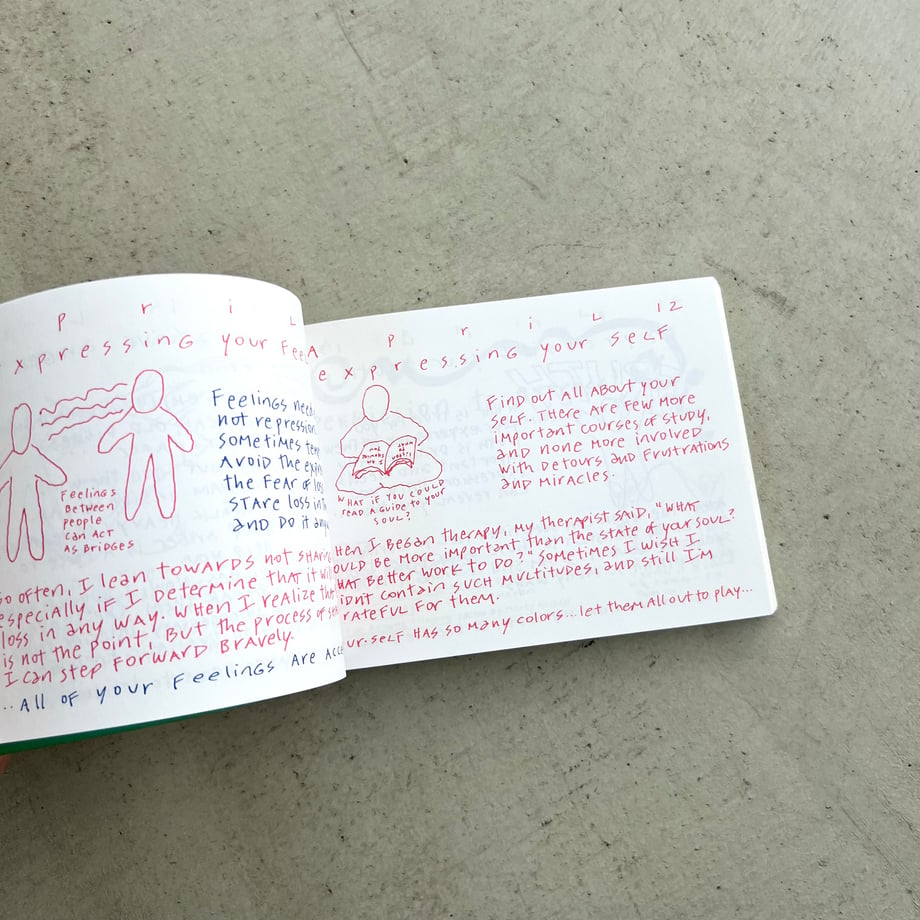 P r i L
xpressing your Fee
Feelings need
not repression
sometimes
Avoid the
the Fear of
stare loss in
and Do it
Feelings
Between
people
can Act
As Bridges
so often, I lean towards not sharing
especially if I determine that it will
loss in any way. When I realize that
is not the point, But the process of
I can step Forward Bravely.
..All of your Feelings Are
A p r i L 12
expressing your self
WHAT if you could
read A Guide to your
soul?
Find out all About your
self. There are few more
important courses of study,
and none more involved
with Detours and Frustrations
and Miracles.
hen I Began therapy, my therapist said, "What
ould Be more important than the state of your soul?
hat Better work to Do?" Sometimes I wish I
idnt contain such Multitudes, and still I'm
rateful for them.
ur.self has so many colors...let them All out to play...